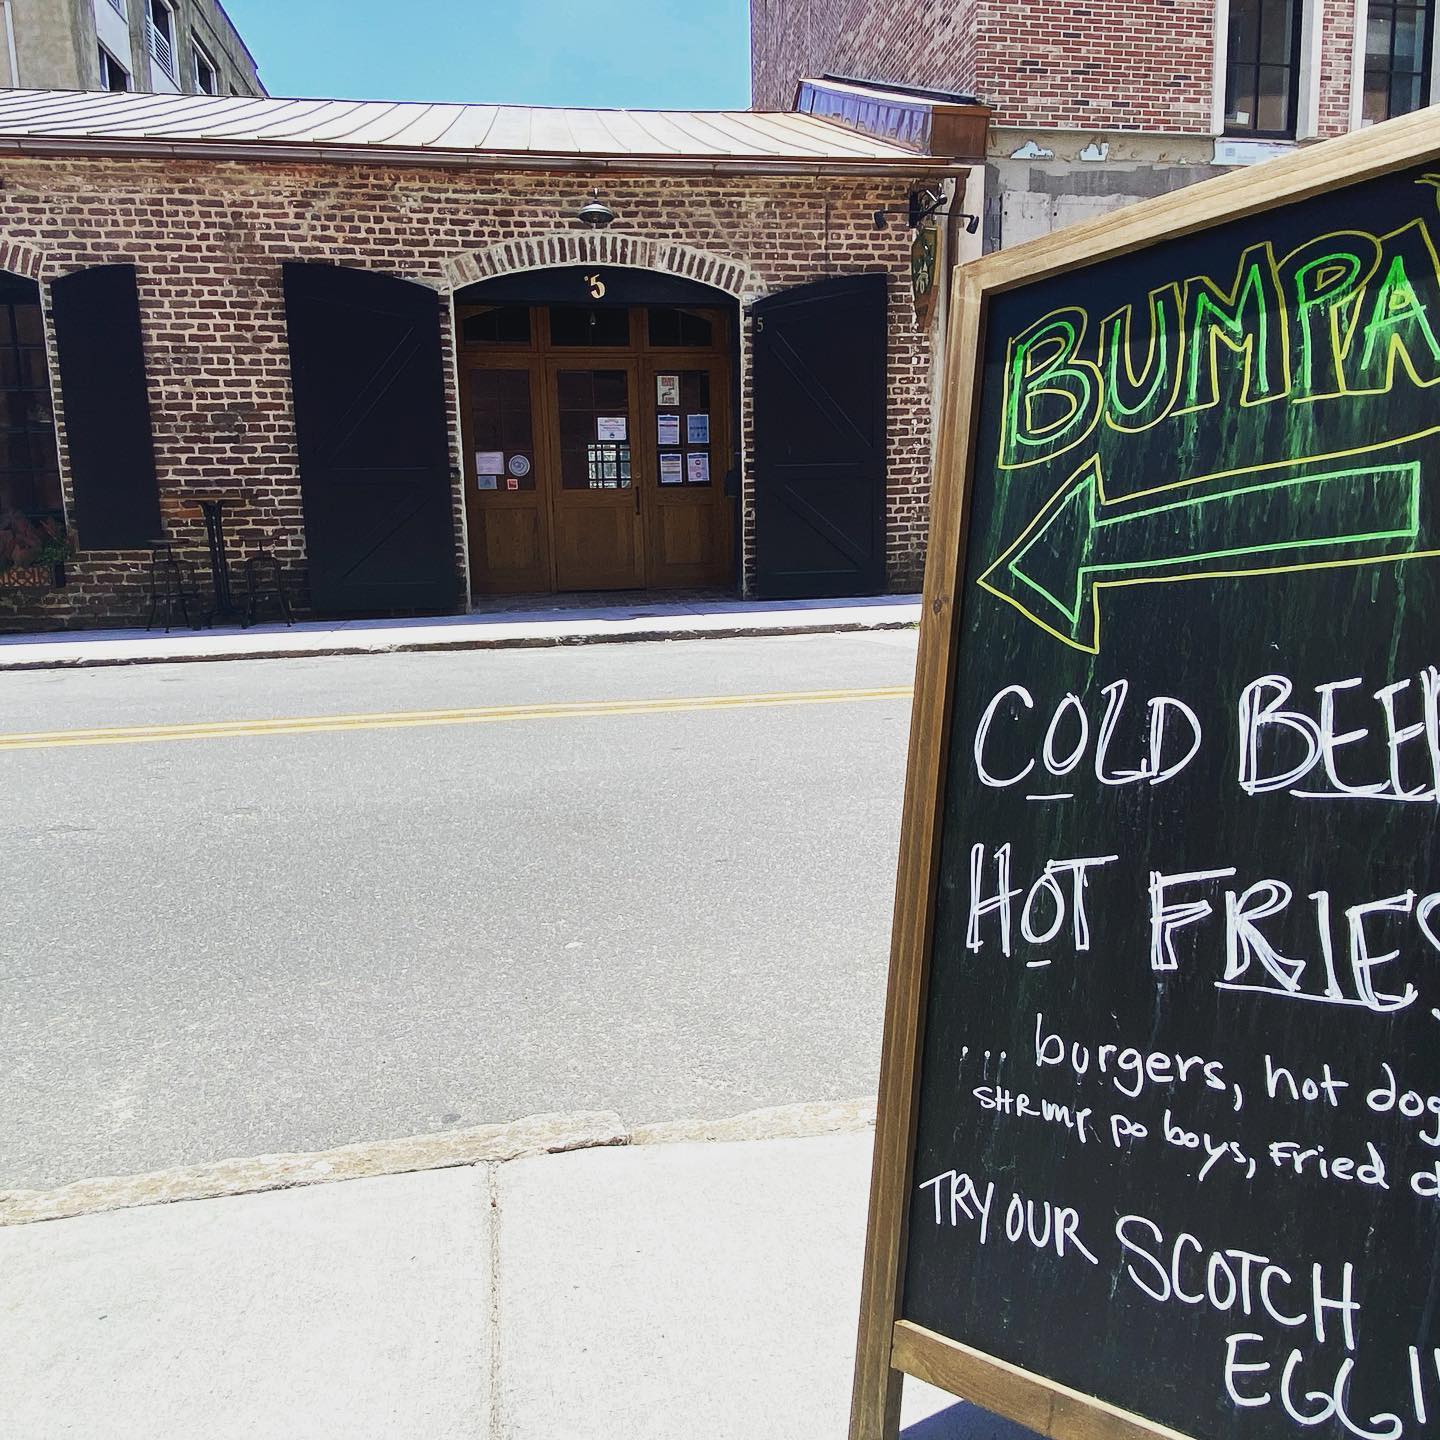 5
5
BUMPA
COLD BEER
HOT FRIES
... burgers, hot dog
SHRIMP po boys, Fried
TRY OUR SCOTCH
EGG!!